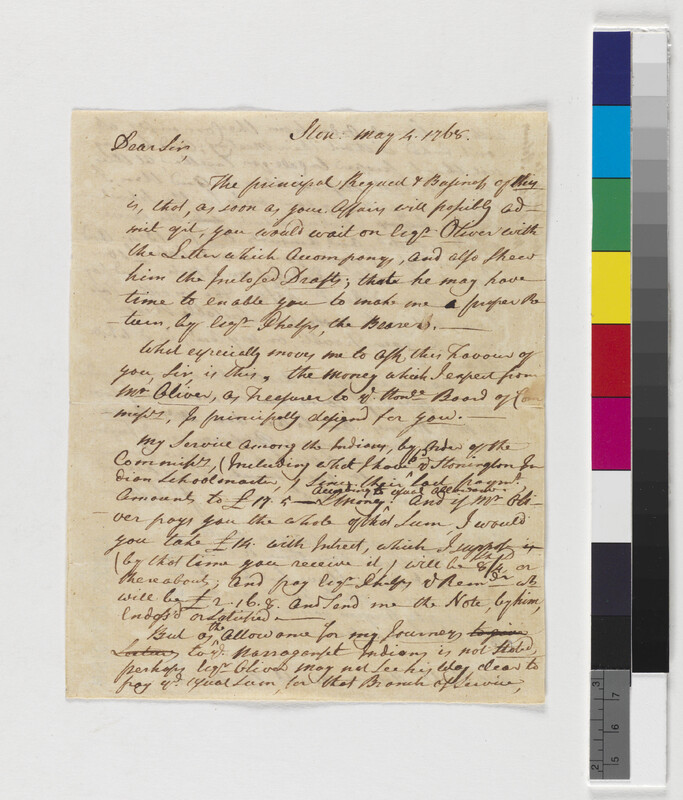 Ston. May 4. 1768.
Dear Sir,
The principal Request & Business of this
is, that, as soon as your Affairs will possibly ad-
mit of it, you would wait on Esqr. Oliver with
the Letter which Accompanys, And also shew
him the Inclosed Drafts; that he may have
time to enable you to make me a proper Re-
turn, by Esqr. Phelps, the Bearer.
What especially moves me to ask this Favour of
you, Sir, is this, the Money which I expect from
Mr. Oliver, as Treasurer to ye. Honle. Board of Com
missrs, Is principally design'd for you.
My Service Among the Indians, by order of the
Commissrs, (Including what I have pd. ye Stonington In
dian Schoolmaster,) Since their last paymt.
According to usual Allowance
Amounts to £17.5 Money. And if Mr. Oli-
ver pays you the whole of that Sum, I would
you take £14. with Intrest, which I suppose is
(by that time you receive it,) will be 8/4 or
thereabout; And pay Esqr. Phelps ye Remdr. wh
will be £2.16.8. And Send me the Note, by him,
Endors'd or Satisfied.
But as the Allowance for my Journeys to give
Lectures to ye. Narraganset Indians is not Stated,
perhaps Esqr. Oliver may not see his way clear to
pay ye. usual Sum, for that Branch of Service,
2 3
5 6 7